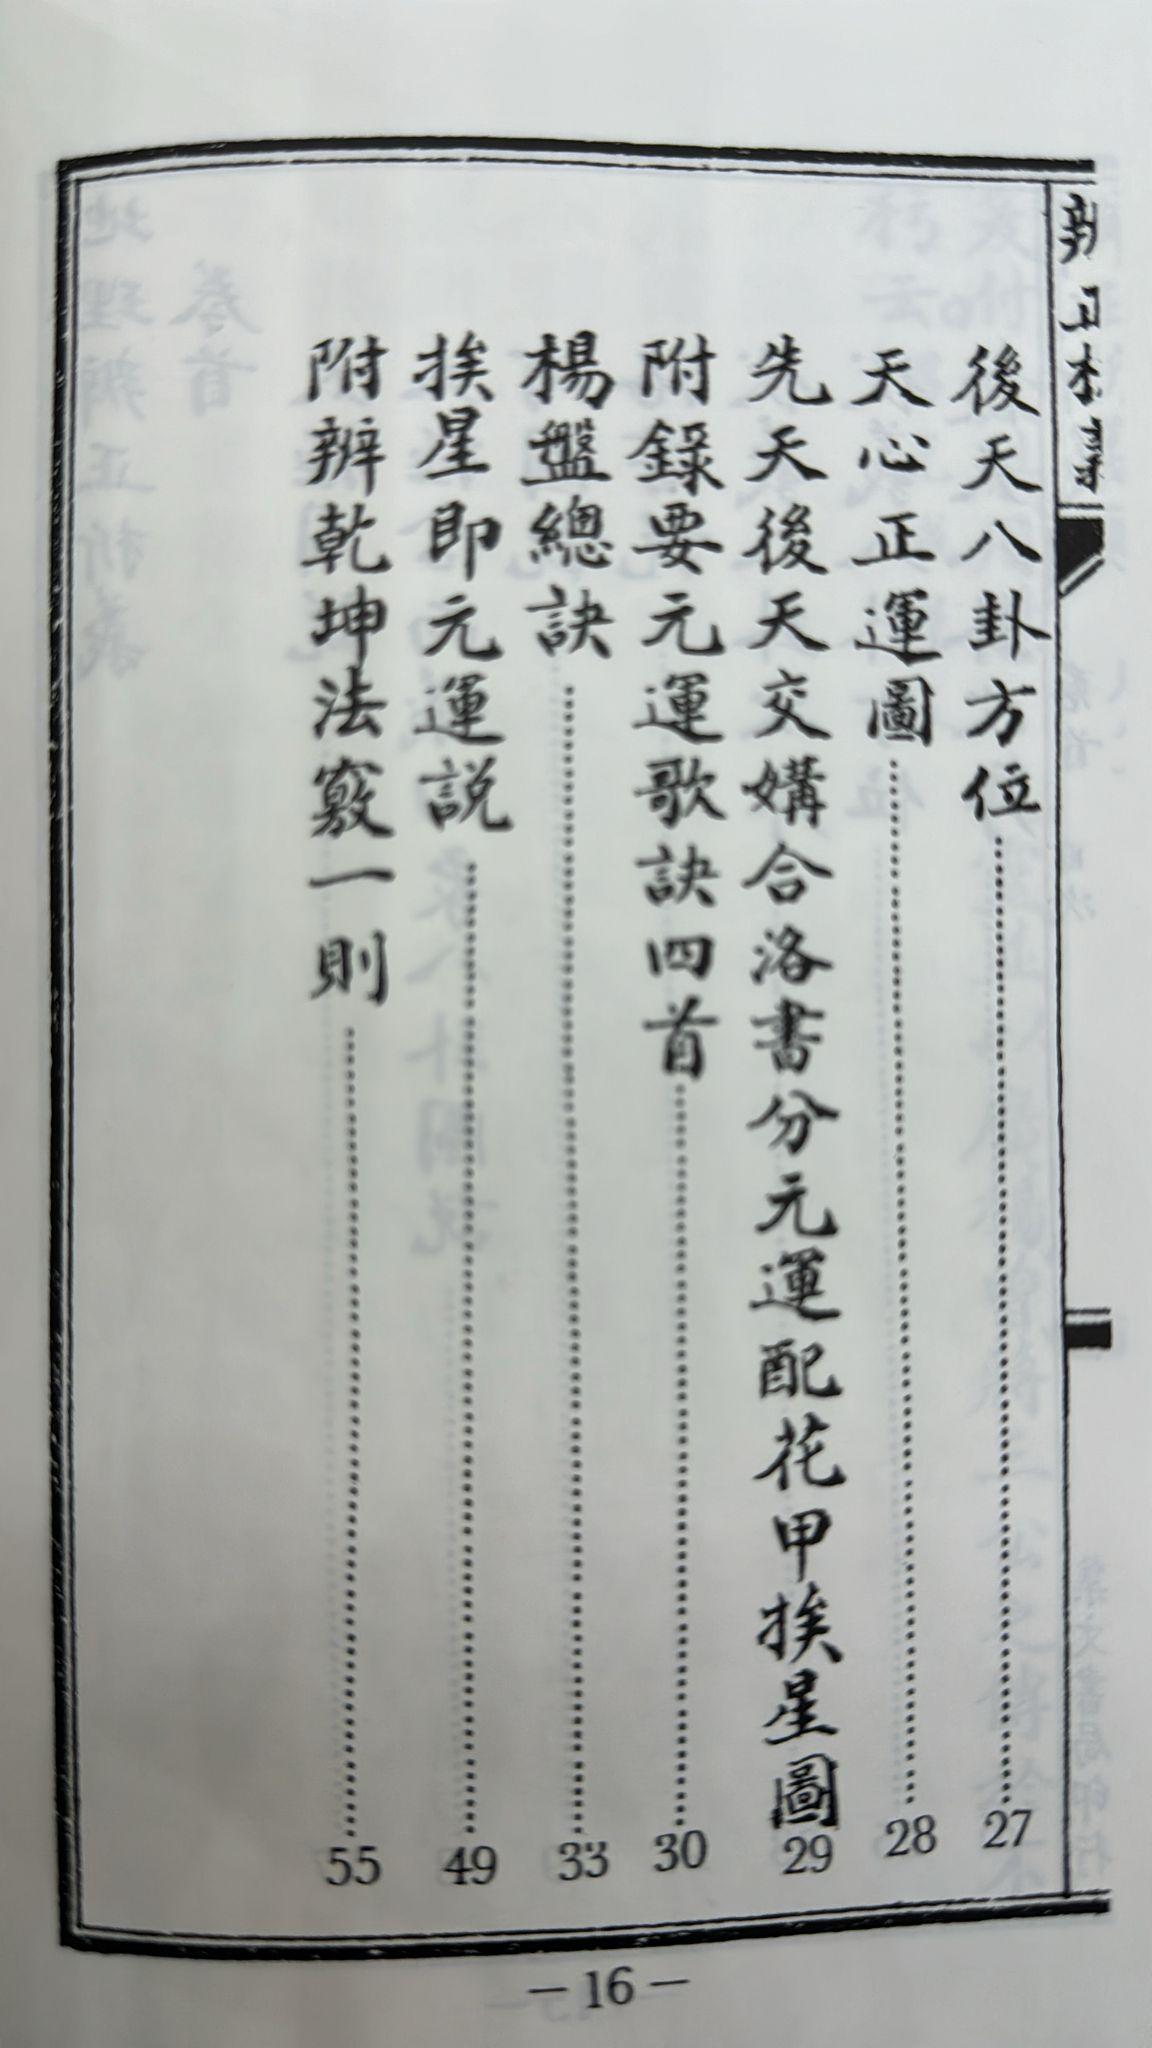 後天八卦方位 27
天心正運圖 28
先天後天交媾合洛書分元運配花甲挨星圖 29
附錄要元運歌訣四首 30
楊盤總訣 33
挨星即元運説 49
附辨乾坤法竅一則 55
－16－